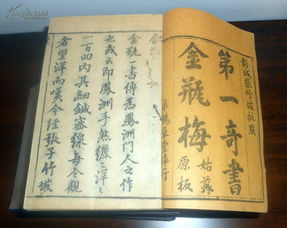 彭城張竹坡批點
第一奇書
金瓶梅
姑蘇
原板
金瓶一書傳爲鳳洲門人之作
也或云即鳳洲手然纚纚洋洋
一百回內其細鍼密線每令觀
者望洋而嘆今經張子竹坡